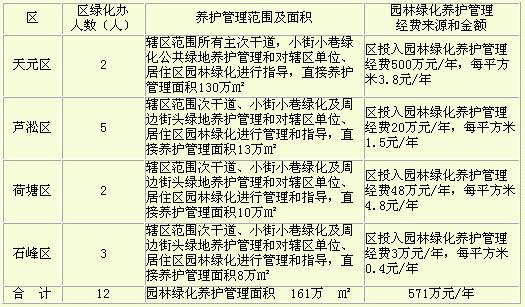 区
区绿化办
人数（人）
养护管理范围及面积
园林绿化养护管理
经费来源和金额
天元区
2
辖区范围所有主次干道，小街小巷绿
化公共绿地养护管理和对辖区单位、
居住区园林绿化进行指导，直接养护
管理面积130万㎡
区投入园林绿化养护管理
经费500万元/年，每平方
米3.8元/年
芦淞区
5
辖区范围次干道、小街小巷绿化及周
边街头绿地养护管理和对辖区单位、
居住区园林绿化进行管理和指导，直
接养护管理面积13万㎡
区投入园林绿化养护管理
经费20万元/年，每平方米
1.5元/年
荷塘区
2
辖区范围次干道、小街小巷绿化及周
边街头绿地养护管理和对辖区单位、
居住区园林绿化进行管理和指导，直
接养护管理面积10万㎡
区投入园林绿化养护管理
经费48万元/年，每平方米
4.8元/年
石峰区
3
辖区范围次干道、小街小巷绿化及周
边街头绿地养护管理和对辖区单位、
居住区园林绿化进行管理和指导，直
接养护管理面积8万㎡
区投入园林绿化养护管理
经费3万元/年，每平方米
0.4元/年
合 计
12
园林绿化养护管理面积 161万 ㎡
571万元/年